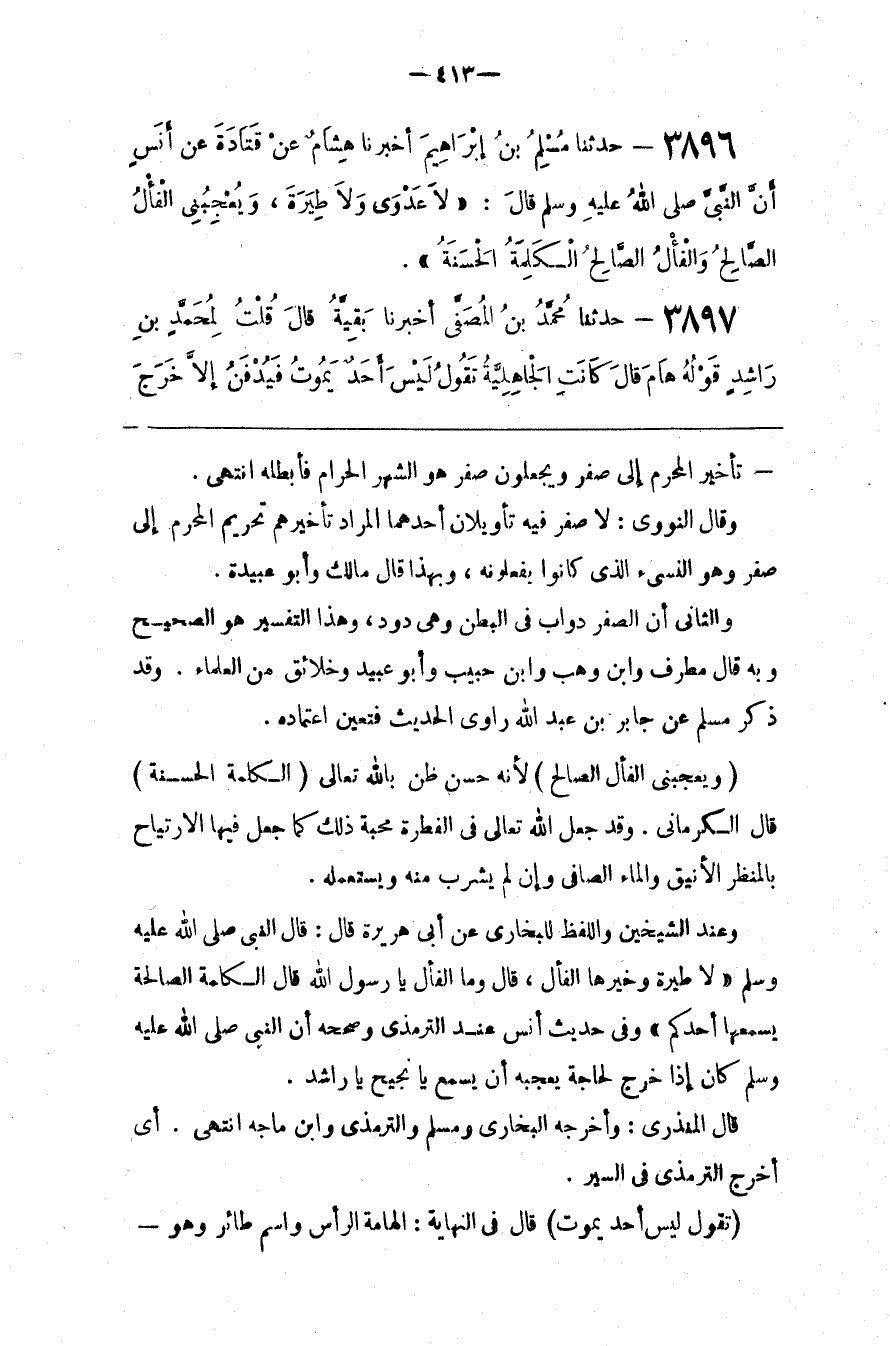 —٤١٣—
٣٨٩٦ — حدثنا مُسْلِمُ بنُ إِبْرَاهِيمَ أخبرنا هِشَامٌ عنْ قَتَادَةَ عن أَنَسٍ
أَنَّ النَّبيَّ صلى اللهُ عليهِ وسلم قالَ : « لاَ عَدْوَى وَلاَ طِيَرَةَ ، وَيُعْجِبُنِى الْفَأْلُ
الصَّالِحُ وَالْفَأْلُ الصَّالِحُ الْـكَلِمَةُ الْحَسَنَةُ » .
٣٨٩٧ — حدثنا مُحمَّدُ بنُ المُصَفَّى أخبرنا بَقِيَّةُ قالَ قُلْتُ لِمُحَمَّدِ بنِ
رَاشِدٍ قَوْلُهُ هَامَ قالَ كَانَتِ الْجَاهِلِيَّةُ تَقُولُ لَيْسَ أَحَدٌ يَمُوتُ فَيُدْفَنُ إلاَّ خَرَجَ
— تأخير المحرم إلى صفر ويجعلون صفر هو الشهر الحرام فأبطله انتهى .
وقال النووى : لا صفر فيه تأويلان أحدهما المراد تأخيرهم تحريم المحرم إلى
صفر وهو النسىء الذى كانوا يفعلونه ، وبهذا قال مالك وأبو عبيدة .
والثانى أن الصفر دواب فى البطن وهى دود ، وهذا التفسير هو الصحيـح
وبه قال مطرف وابن وهب وابن حبيب وأبو عبيد وخلائق من العلماء . وقد
ذكر مسلم عن جابر بن عبد الله راوى الحديث فتعين اعتماده .
( ويعجبنى الفأل الصالح ) لأنه حسن ظن بالله تعالى ( الـكلمة الحسـنة )
قال الـكرمانى . وقد جعل الله تعالى فى الفطرة محبة ذلك كما جعل فيها الارتياح
بالمنظر الأنيق والماء الصافى وإن لم يشرب منه ويستعمله .
وعند الشيخين واللفظ للبخارى عن أبى هريرة قال : قال النبى صلى الله عليه
وسلم « لا طيرة وخيرها الفأل ، قال وما الفأل يا رسول الله قال الـكلمة الصالحة
يسمعها أحدكم » وفى حديث أنس عنـد الترمذى وصححه أن النبى صلى الله عليه
وسلم كان إذا خرج لحاجة يعجبه أن يسمع يا نجيح يا راشد .
قال المنذرى : وأخرجه البخارى ومسلم والترمذى وابن ماجه انتهى . أى
أخرج الترمذى فى السير .
(تقول ليس أحد يموت) قال فى النهاية : الهامة الرأس واسم طائر وهو —